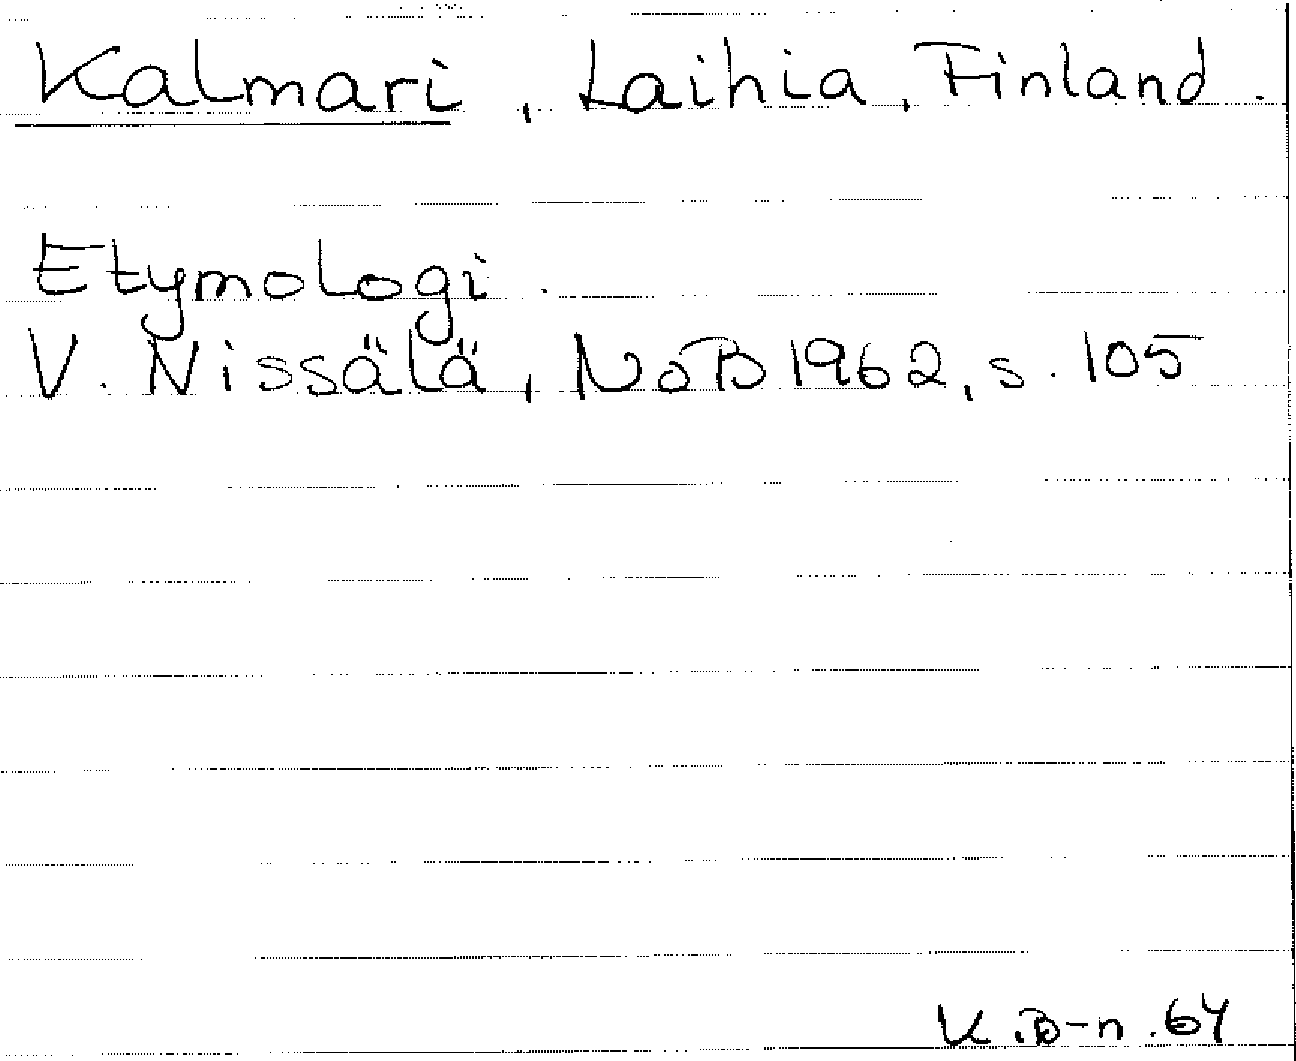 Kalmari, Laihia, Finland.
Etymologi.
V. Nissälä, NoB 1962, s. 105
K.B-n. 64